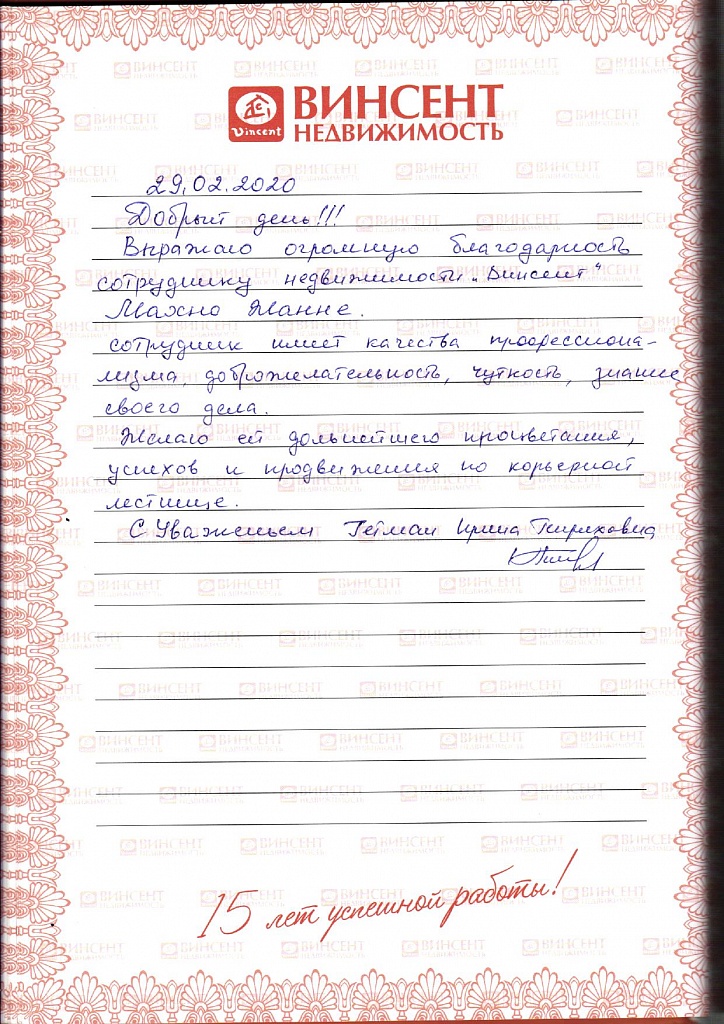 Vincent
ВИНСЕНТ
НЕДВИЖИМОСТЬ
29.02.2020
Добрый день!!!
Выражаю огромную благодарность
сотруднику недвижимости „Винсент“
Махно Жанне.
сотрудник имеет качества профессиона-
лизма, доброжелательность, чуткость, знание
своего дела.
Желаю ей дольнейшего процветания,
успехов и продвижения по корьерной
лестнице.
С Уваженьем Гетман Ирина
15 лет успешной работы!